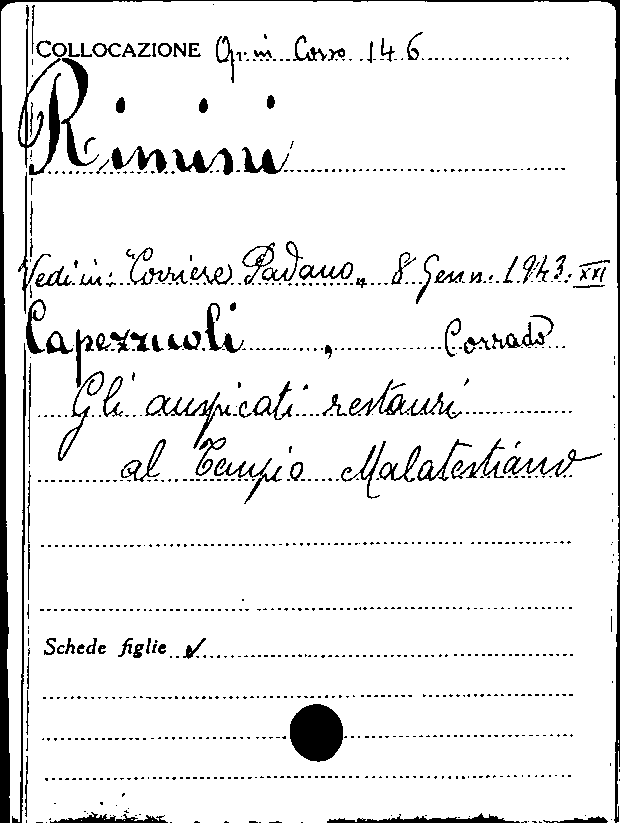 COLLOCAZIONE Op. in Corso 146
Rimini
Vedi in: "Corriere Padano„ 8 Genn. 1943. XXI
Capezzuoli, Corrado
Gli auspicati restauri
al Tempio Malatestiano
Schede figlie ✓